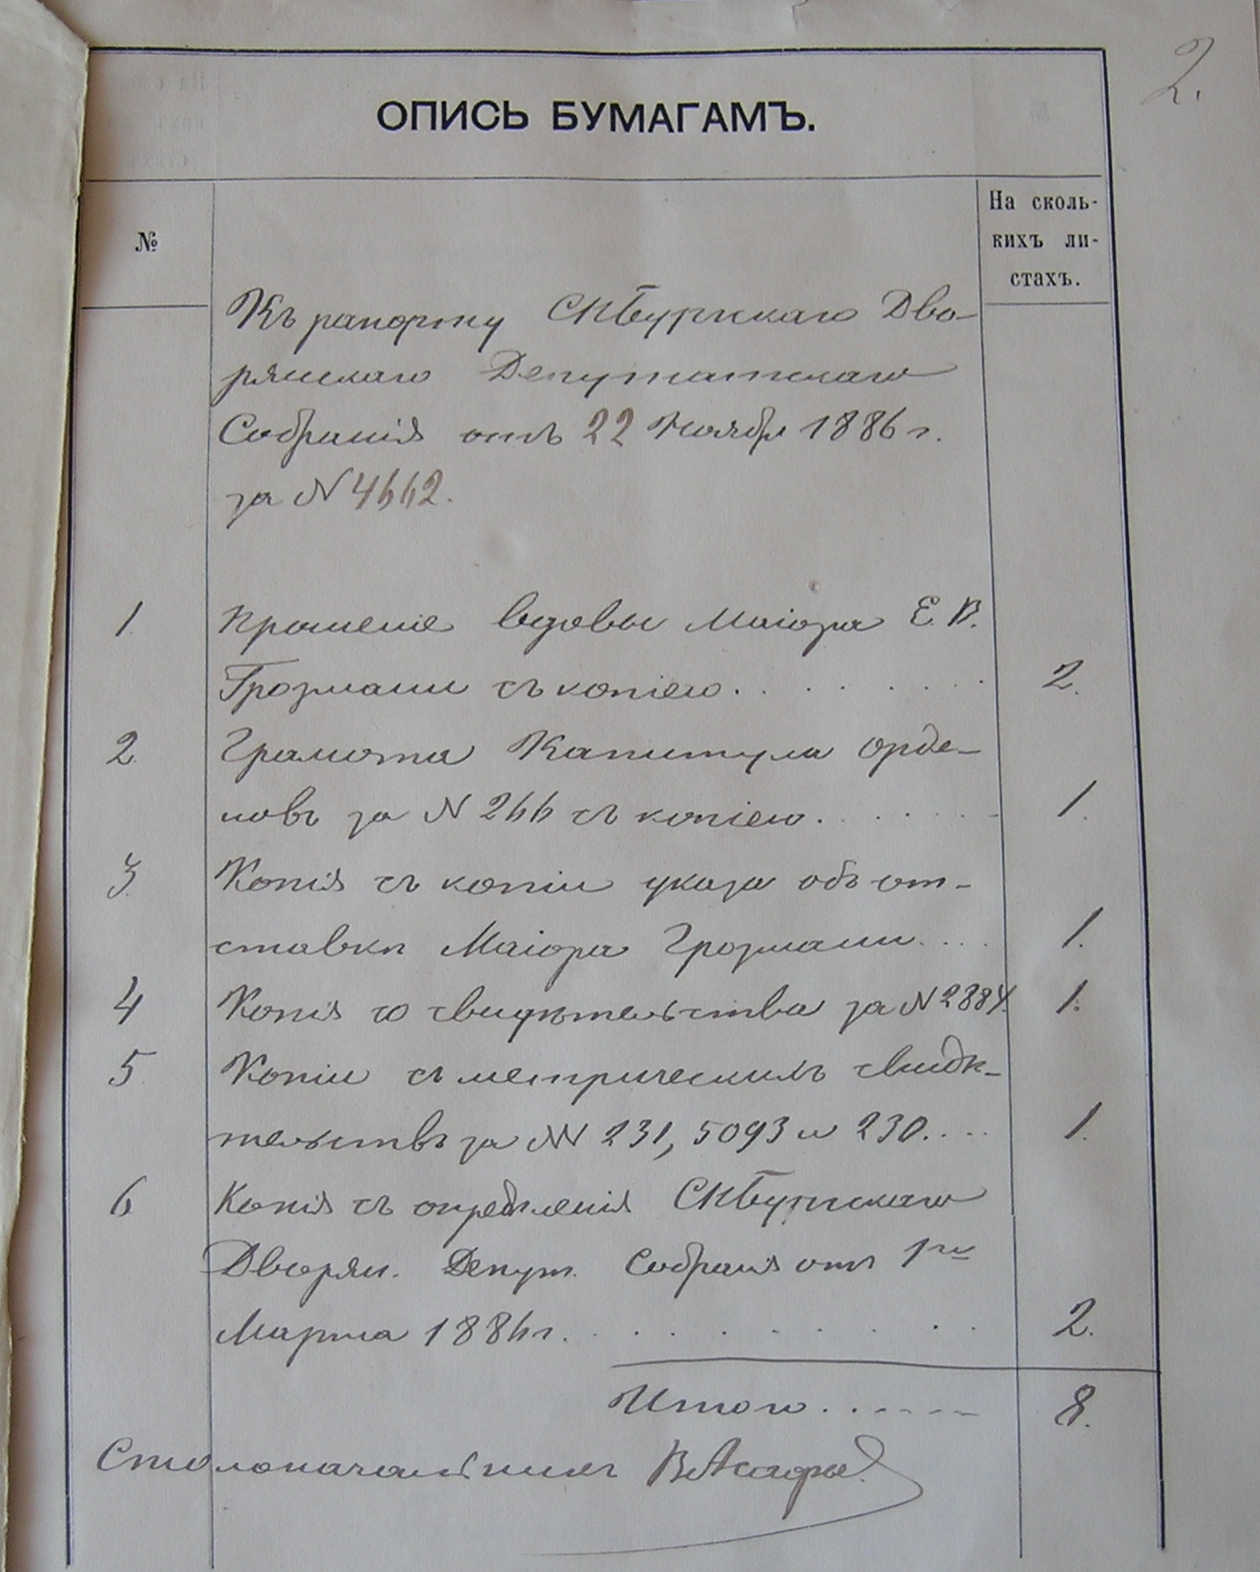 2.
ОПИСЬ БУМАГАМЪ.
№
На сколь-
кихъ ли-
стахъ.
Къ рапорту СПбургскаго Дво-
рянскаго Депутатскаго
Собранія отъ 22 Ноября 1886 г.
за N 4662.
1. Прошеніе вдовы Маіора Е. В.
Грозмани съ копіею . . . . . . . . 2.
2. Грамота Капитула Орде-
новъ за N 266 съ копіею . . . . . . . 1.
3. Копія съ копіи указа объ от-
ставки Маіора Грозмани . . . . 1.
4 Копія со свидѣтельства за N 2884. 1.
5. Копіи съ метрическихъ свидѣ-
тельствъ за NN 231, 5093 и 230. . . . 1.
6 Копія съ опредѣленія СПбургскаго
Дворян. Депут. Собранія отъ 1го
Марта 1886 г. . . . . . . . . . 2.
Итого . . . . . . 8.
Столоначальникъ